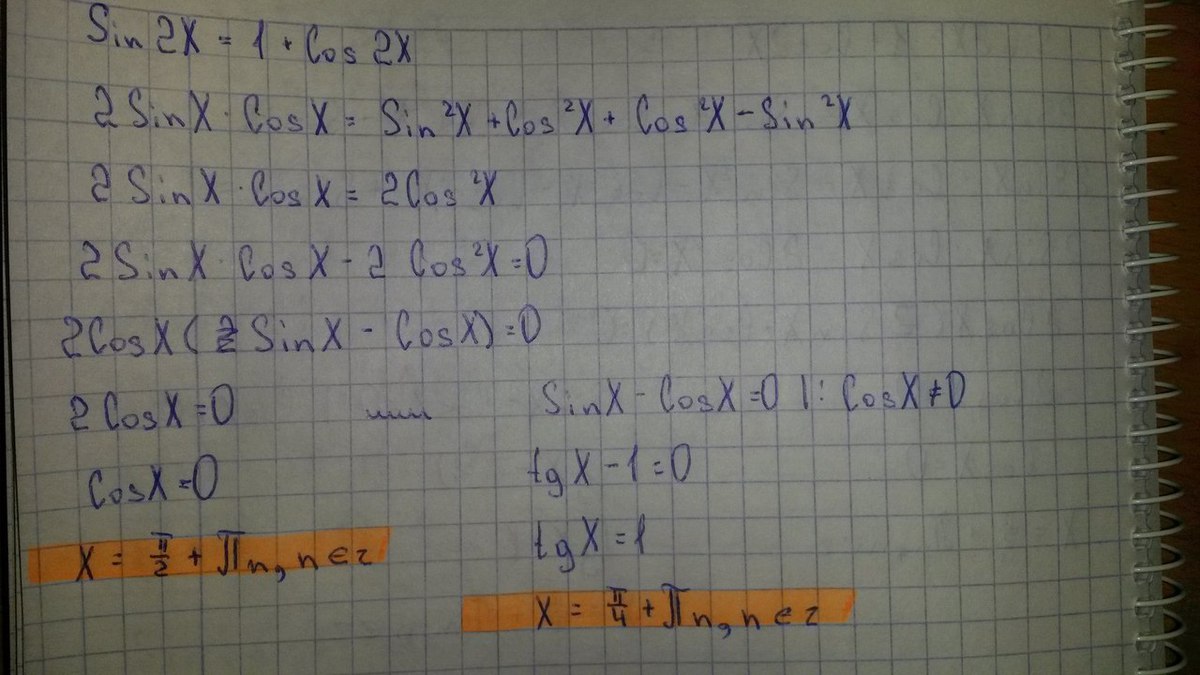 Sin 2X = 1 + Cos 2X
2 SinX · CosX = Sin²X + Cos²X + Cos²X - Sin²X
2 SinX · CosX = 2Cos²X
2 SinX · CosX - 2 Cos²X = 0
2CosX ( SinX - CosX) = 0
2 CosX = 0 или SinX - CosX = 0 |: CosX ≠ 0
CosX = 0 tgX - 1 = 0
tgX = 1
X = π/2 + πn, n ∈ z
X = π/4 + πn, n ∈ z